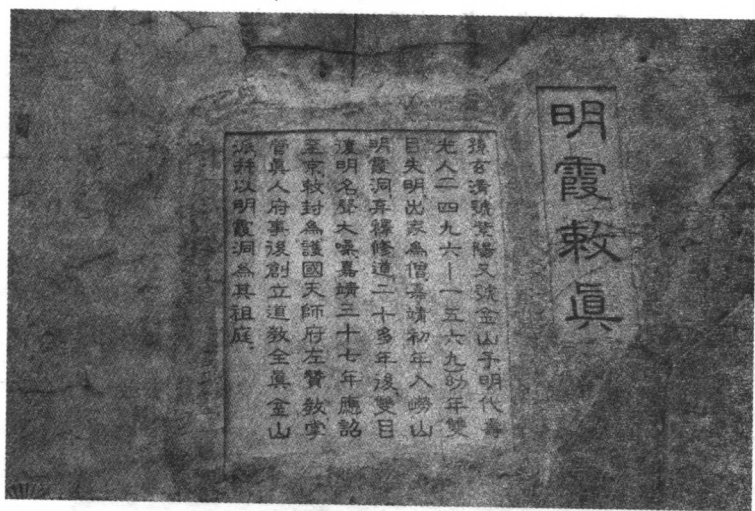 明霞敕眞
孫玄清號紫陽又號金山子明代壽
光人(一四九六—一五六九)幼年雙
目失明,出家為僧,嘉靖初年入嶗山
明霞洞棄釋修道,二十多年後,雙目
復明名聲大噪嘉靖三十七年應詔
至京敕封為護國天師府左贊教掌
管眞人府事後創立道教全眞金山
派并以明霞洞為其祖庭.